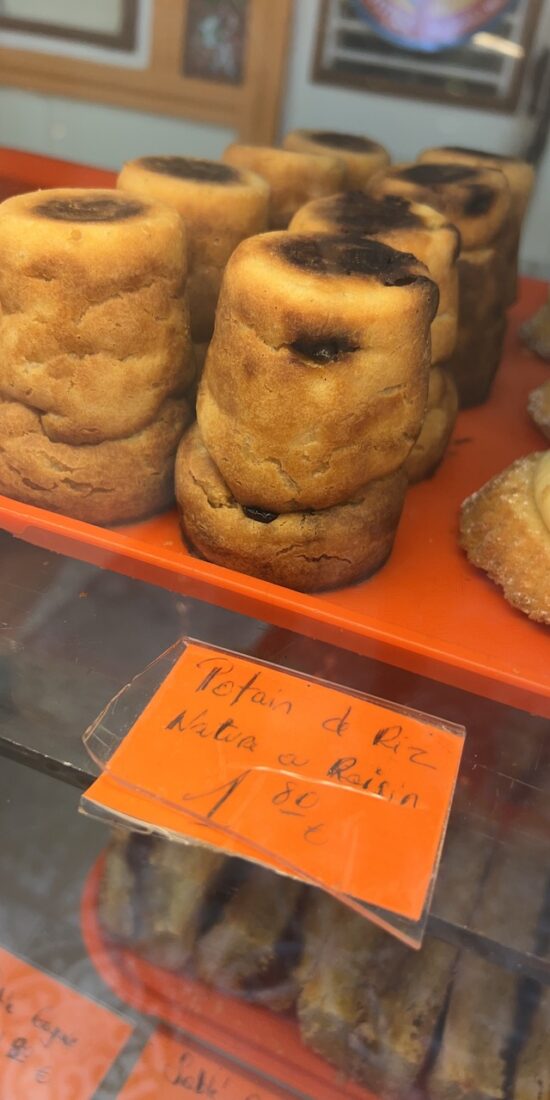 Potain de Riz
Nature ou Raisin
1 80
€
Sablé
€